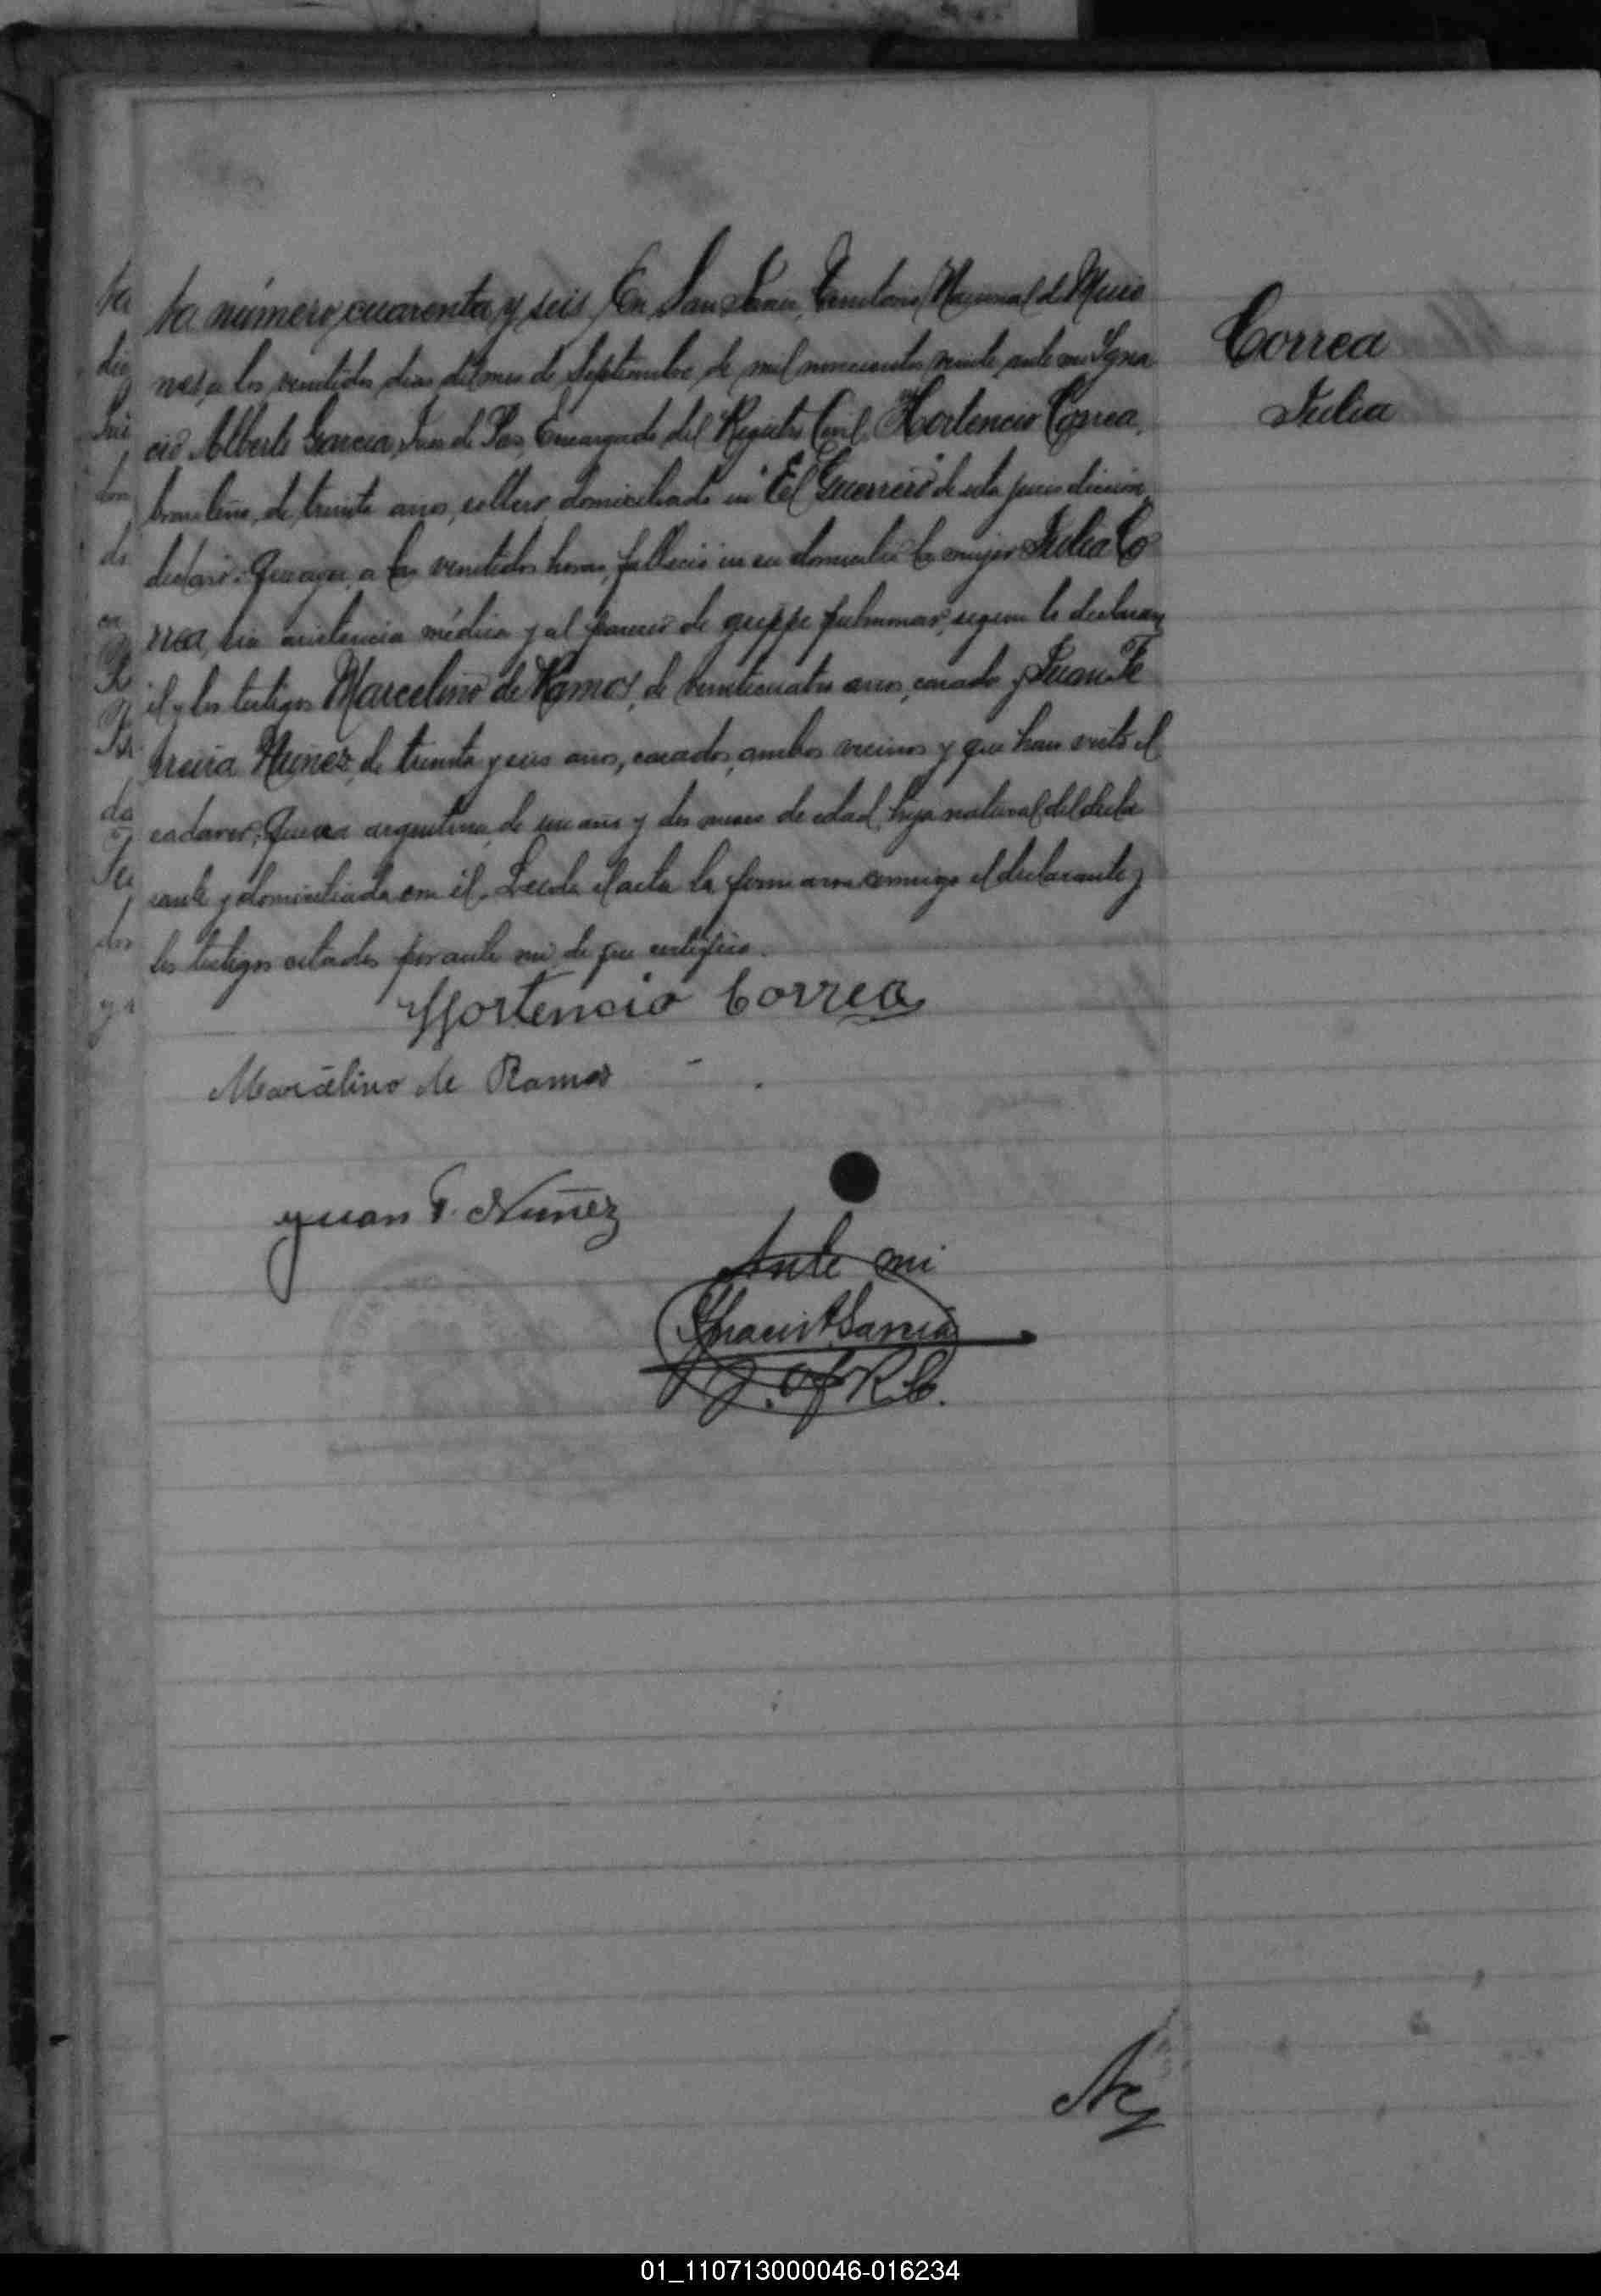 ta número cuarenta y seis. En San Javier, Territorio Nacional de Misio
nes, a los veintidos dias del mes de Septiembre de mil novecientos veinte, ante mi Igna
cio Alberto Garcia, Juez de Paz, Encargado del Registro Civil, Hortencio Correa,
brasileño, de treinta años, soltero, domiciliado en "El Guerrero" de esta jurisdiccion,
declaró: Que ayer, a las veintidos horas, falleció en su domicilio la mujer Julia Co
rrea, sin asistencia médica y al parecer de grippe pulmonar, segun lo declaran
él y los testigos Marcelino de Ramos, de veinticuatro años, casado y Juan Fe
rreira Nuñez, de treinta y seis años, casados, ambos vecinos y que han visto el
cadaver; Que era argentina, de un año y dos meses de edad, hija natural del decla
rante y domiciliada con él. Leida el acta la firmaron conmigo el declarante y
los testigos citados por ante mi de que certifico.
Correa
Julia
Hortencio Correa
Marcelino de Ramos
Juan F. Nuñez
Ante mi
Ignacio A. Garcia
J. Of R. C.
Ac
01_110713000046-016234